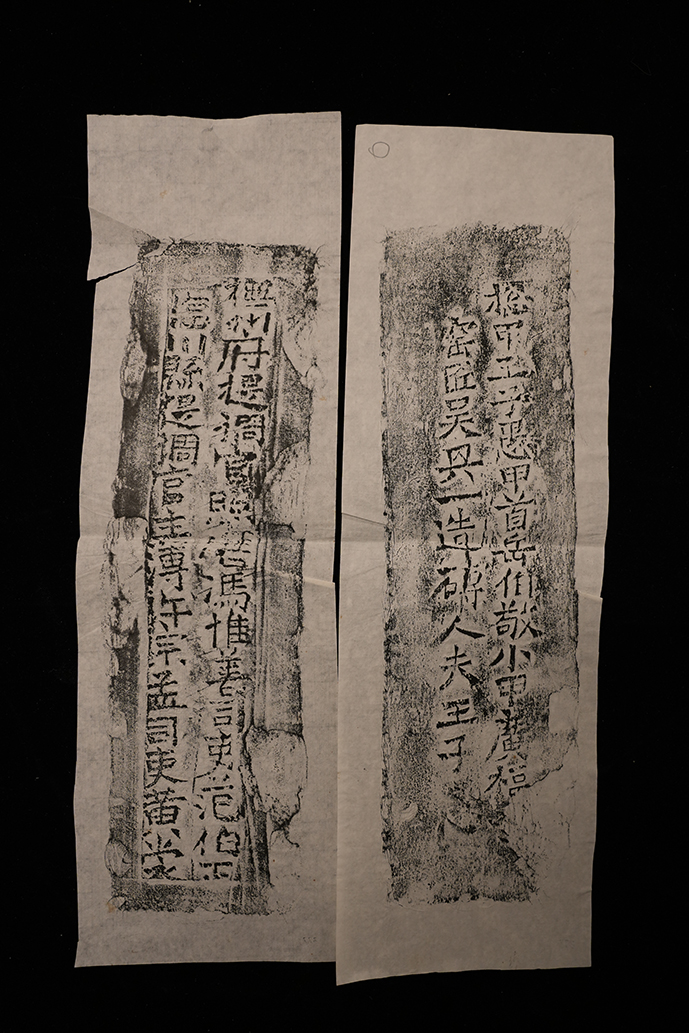 撫州府提調官照磨馮惟善司吏范伯正
臨川縣提調官主簿許宗孟司吏黃
總甲王子甲首岳仲敬小甲廣福
窑匠吳一造磚人夫王子